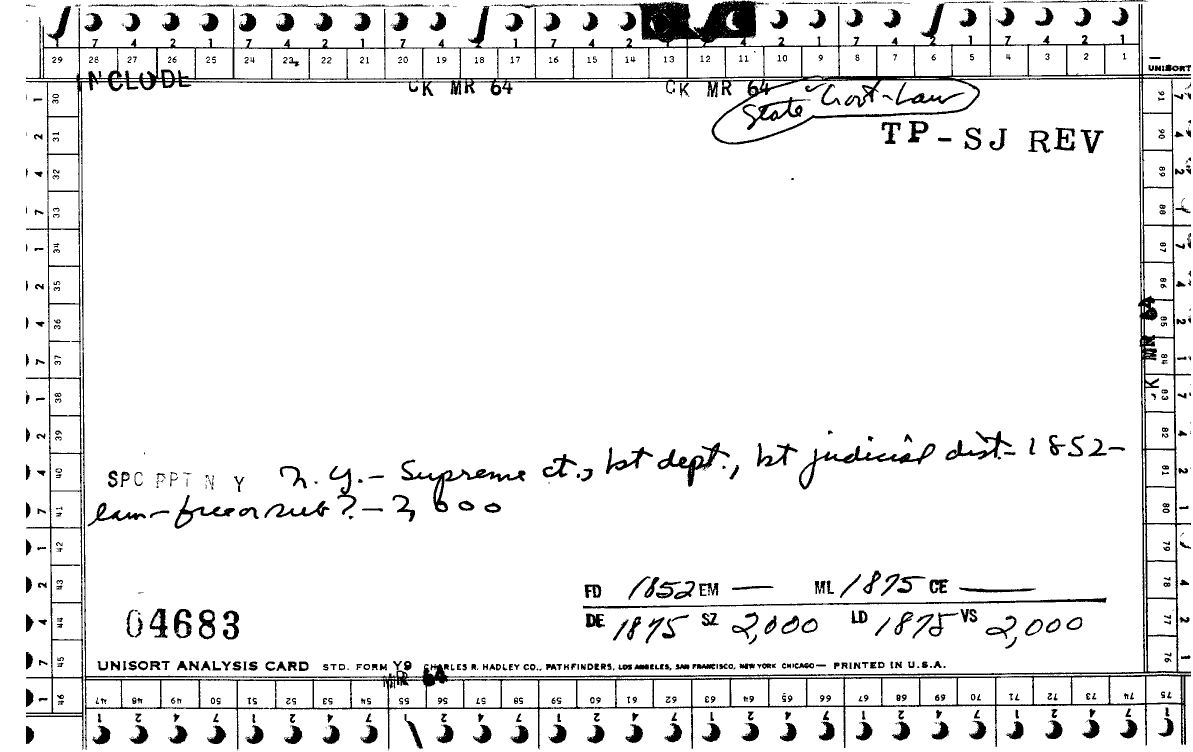 7 4 2 1 7 4 2 1 7 4 2 1 7 4 2 1 7 4 2 1 7 4 2 1 7 4 2 1
29 28 27 26 25 24 23 22 21 20 19 18 17 16 15 14 13 12 11 10 9 8 7 6 5 4 3 2 1
UNISORT
INCLUDE CK MR 64 CK MR 64
State Govt-Law
TP-SJ REV
1 30
2 31
4 32
7 33
1 34
2 35
4 36
7 37
1 38
2 39
4 40
7 41
1 42
2 43
4 44
7 45
1 46
91
90
89
88
87
86
85
84
83
82
81
80
79
78
77
76
MR 64
SPC PPT N Y N.Y.- Supreme ct., 1st dept., 1st judicial dist.- 1852-
law- free or sub? - 2,000
FD 1852 EM — ML 1875 CE —
04683
DE 1875 SZ 2,000 LD 1875 VS 2,000
UNISORT ANALYSIS CARD STD. FORM Y9 CHARLES R. HADLEY CO., PATHFINDERS, LOS ANGELES, SAN FRANCISCO, NEW YORK CHICAGO— PRINTED IN U.S.A.
MR 64
47 48 49 50 51 52 53 54 55 56 57 58 59 60 61 62 63 64 65 66 67 68 69 70 71 72 73 74 75
1 2 4 7 1 2 4 7 1 2 4 7 1 2 4 7 1 2 4 7 1 2 4 7 1 2 4 7 1